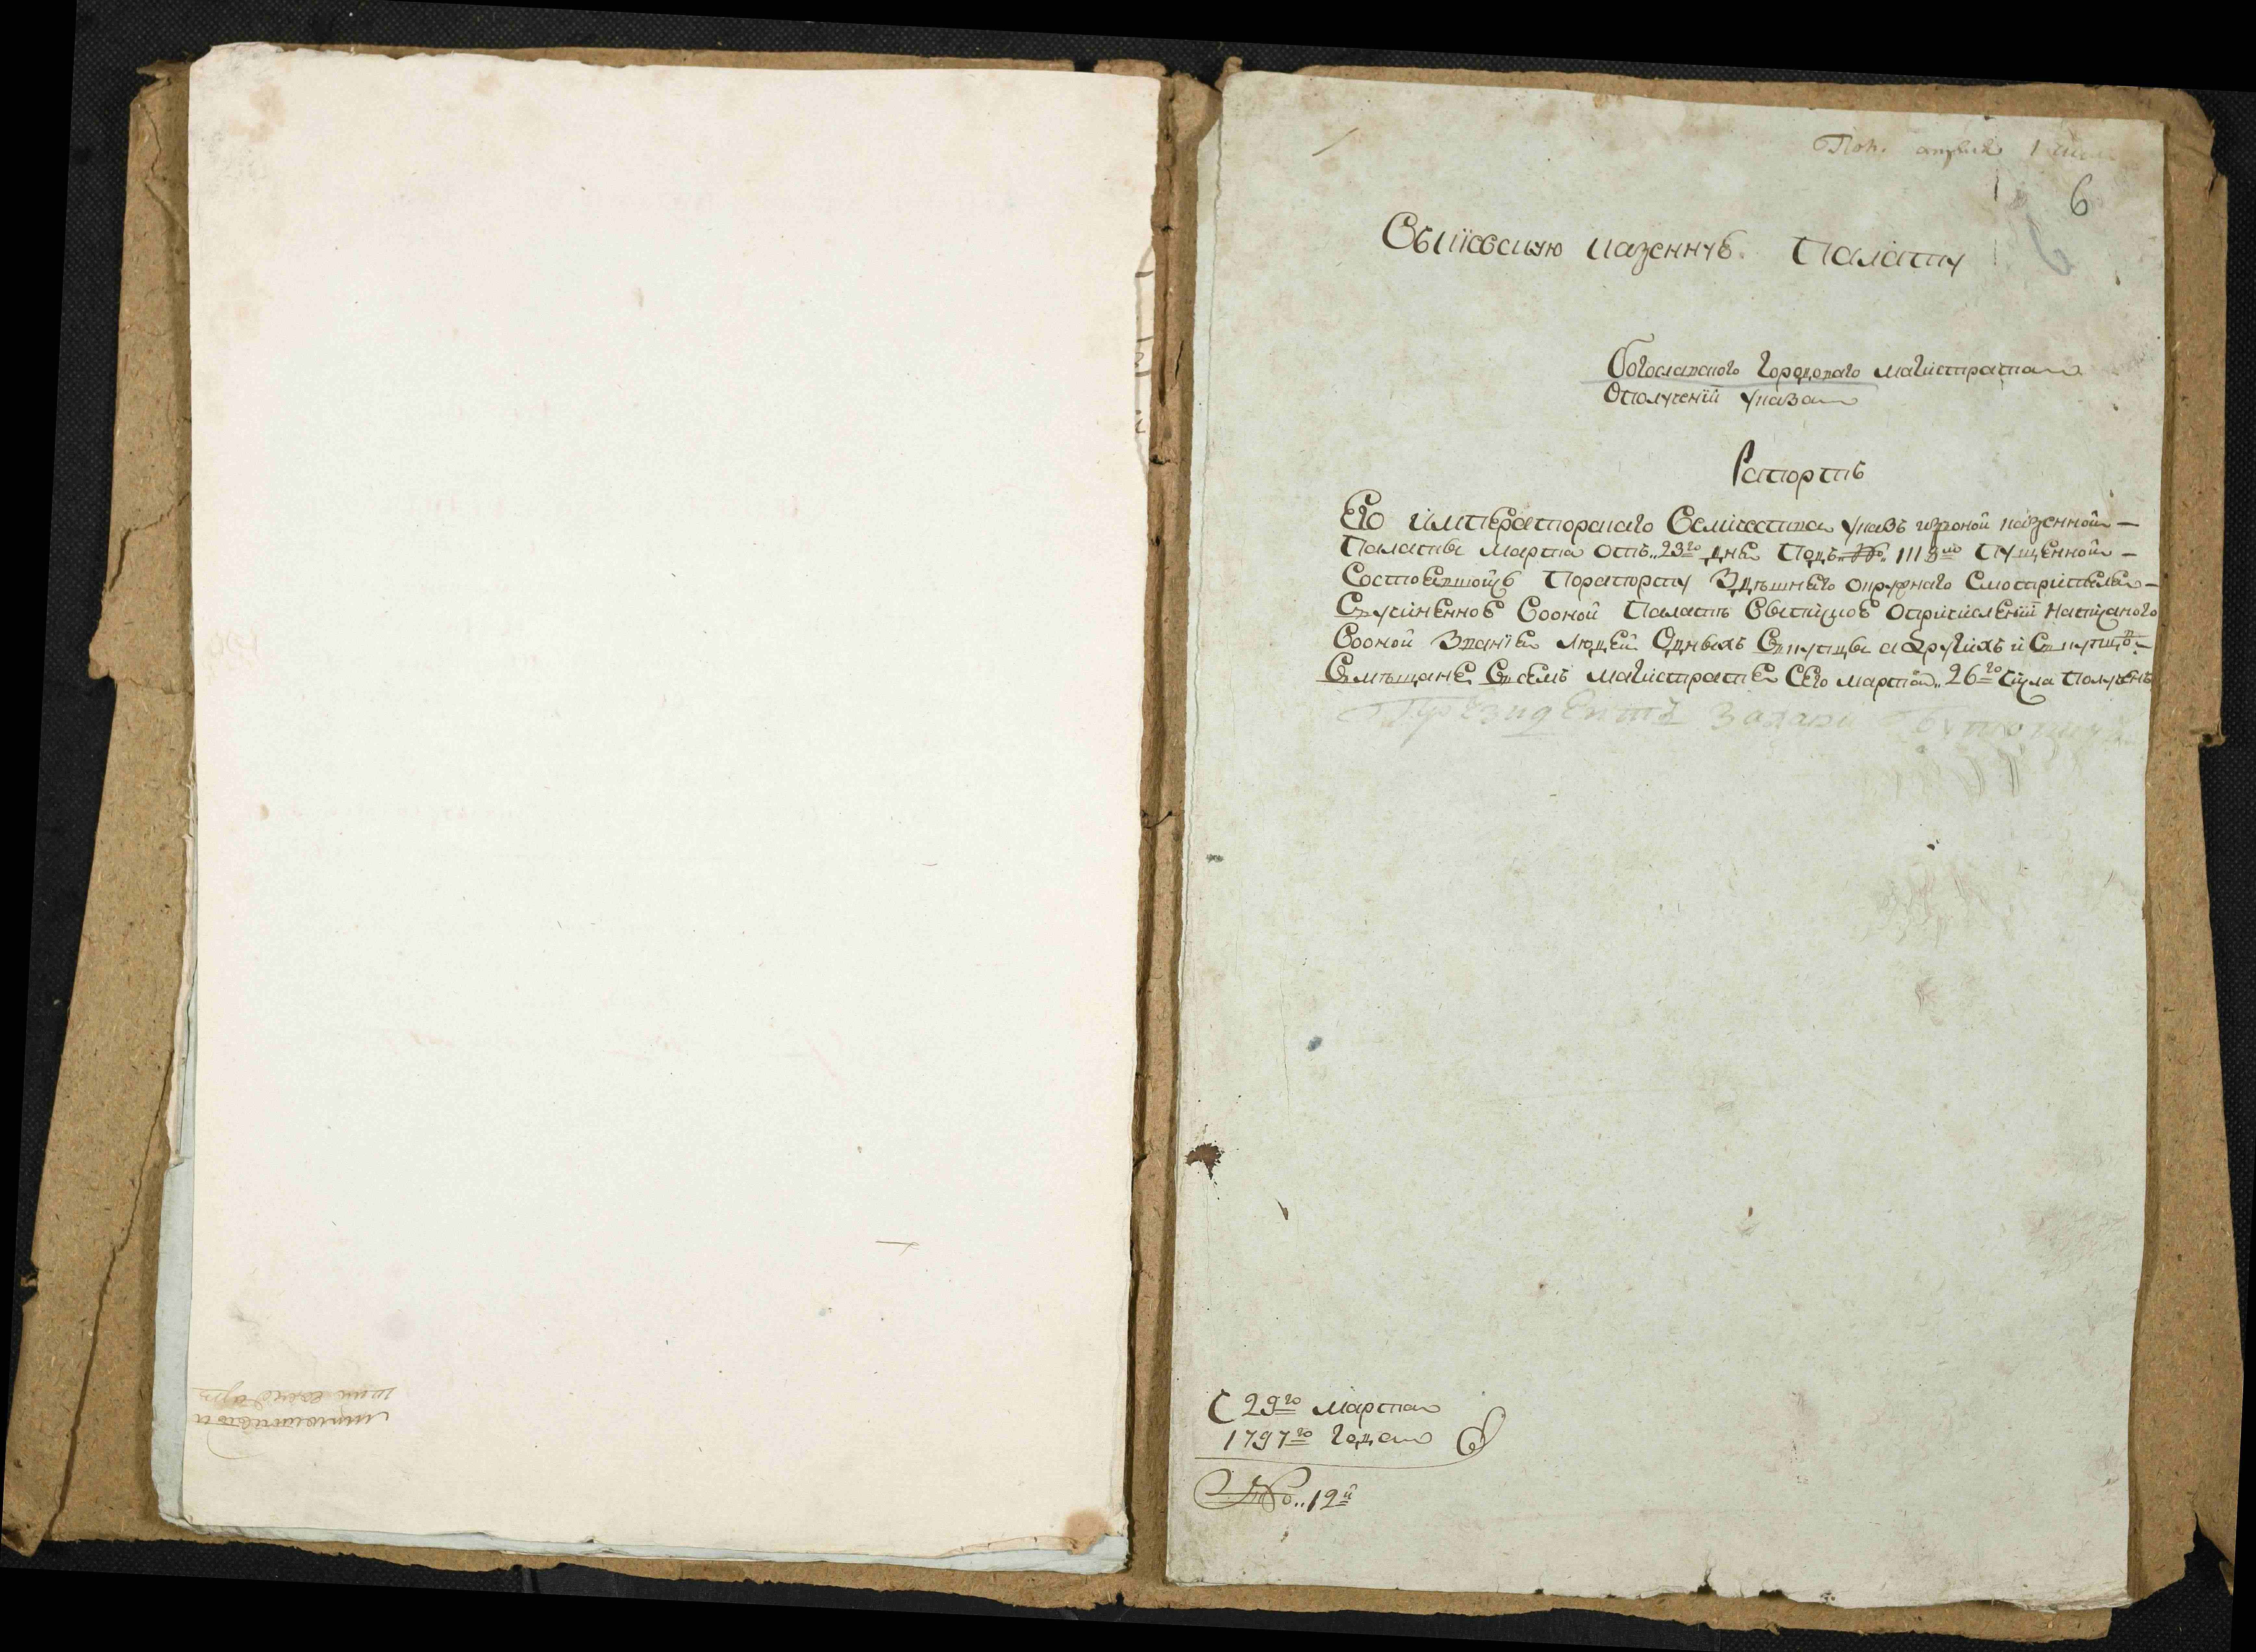 Пол. апреля 1
6
Въ Киевскую казенную Палату
Богославского Городового магистрата
О получении указа
Рапортъ
Его императорского Величества указъ изъоной казенной
Палаты марта отъ 23го дня подъ № 1113мъ пущенной
Состоявшойся порапорту Здешнего окружного Смотрителя
Оучиненное Воной Палате Выписке Опричислении Написаного
Воной Звания людей Однихъ Вкупцы а других и Вкупцо
Вмещане Всемъ магистрате Сего марта 26го Числа Полученъ
Президентъ Захари
29го марта
1797го года
№ 12й